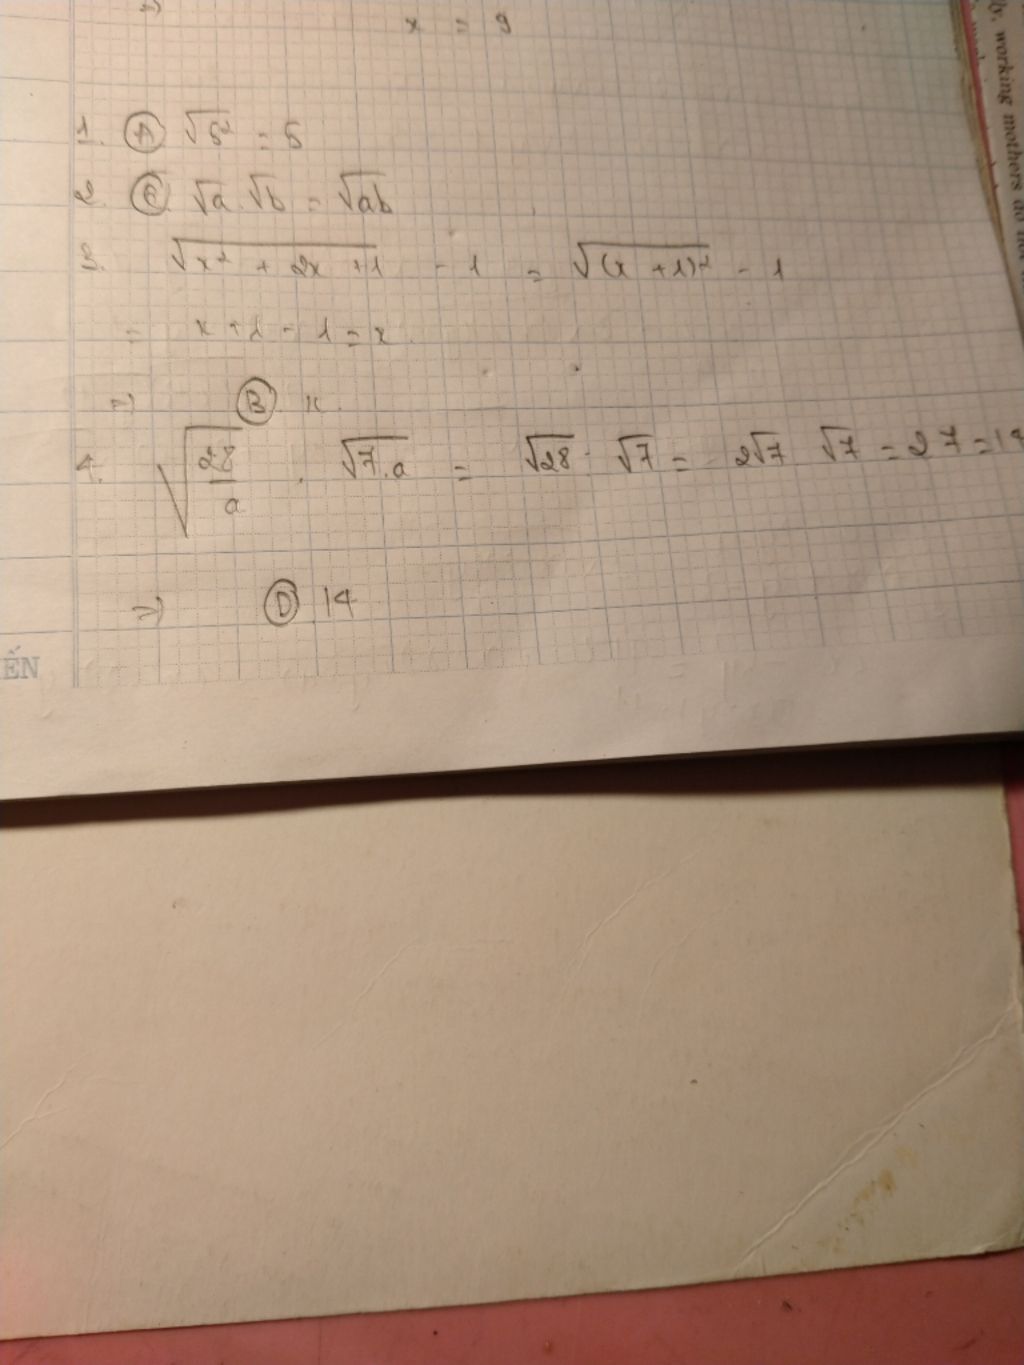 => x = 9
1. Ⓐ √5² = 5
2. Ⓒ √a . √b = √ab
3. √x² + 2x + 1 - 1 = √(x + 1)² - 1
= x + 1 - 1 = x
=> Ⓑ x.
4. √28/a . √7.a = √28 . √7 = 2√7 √7 = 2 7 = 14
=> Ⓓ 14
ẾN
working mothers do